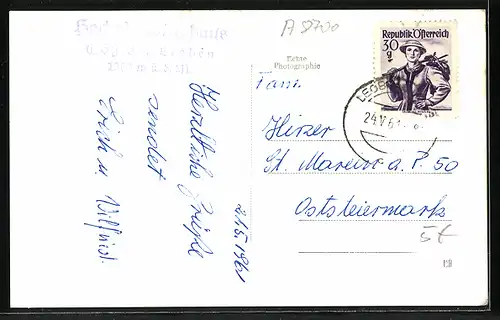 A 8700
Echte
Photographie
Republik Österreich
30
g
24.V.61
Herzliche Grüße
sendet
Erich u. Wilfried.
21.5.1961
Fam.
Hirzer
St. Marein a. P. 50
Oststeiermark
5€